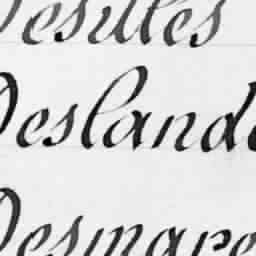 Desilles
Deslande
Desmare